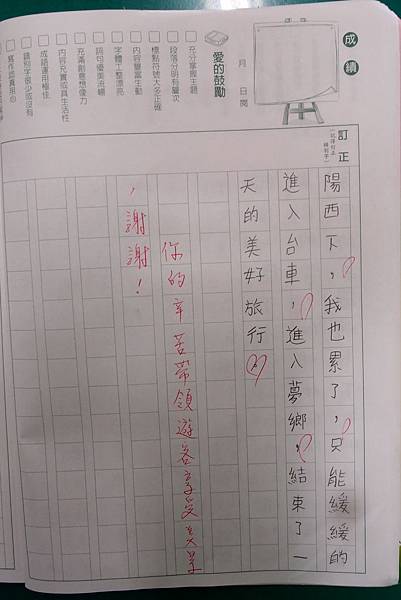 成績
月 日 閱
愛的鼓勵
充分掌握主題
段落分明有層次
標點符號大多正確
內容豐富生動
字體工整漂亮
詞句優美流暢
充滿創意想像力
內容充實或具生活性
成語運用極佳
錯別字很少或沒有
寫作認真用心
訂正
陽西下，我也累了，只能緩緩的
進入台車，進入夢鄉，結束了一
天的美好旅行。
你的辛苦帶領遊客享受美景
，謝謝！